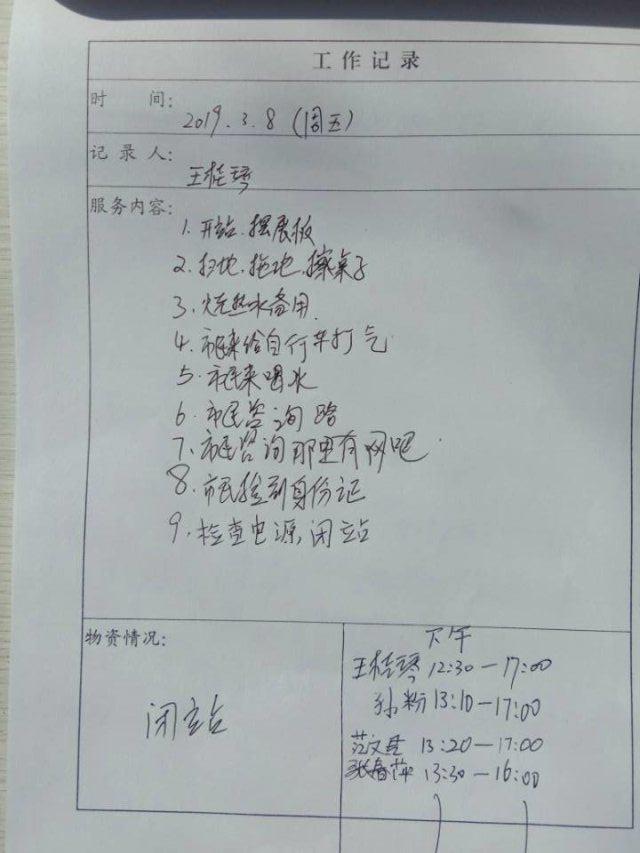 工作记录
时 间: 2019.3.8 (周五)
记录人: 王桂琴
服务内容:
1. 开站.摆展板
2. 扫地.拖地.擦桌子
3. 烧热水备用.
4. 市民来给自行车打气
5. 市民来喝水
6. 市民咨询路
7. 市民咨询那里有网吧.
8. 市民捡到身份证
9. 检查电源,闭站
物资情况:
闭站
下午
王桂琴 12:30—17:00
孙粉 13:10—17:00
13:20—17:00
张春萍 13:30—16:00